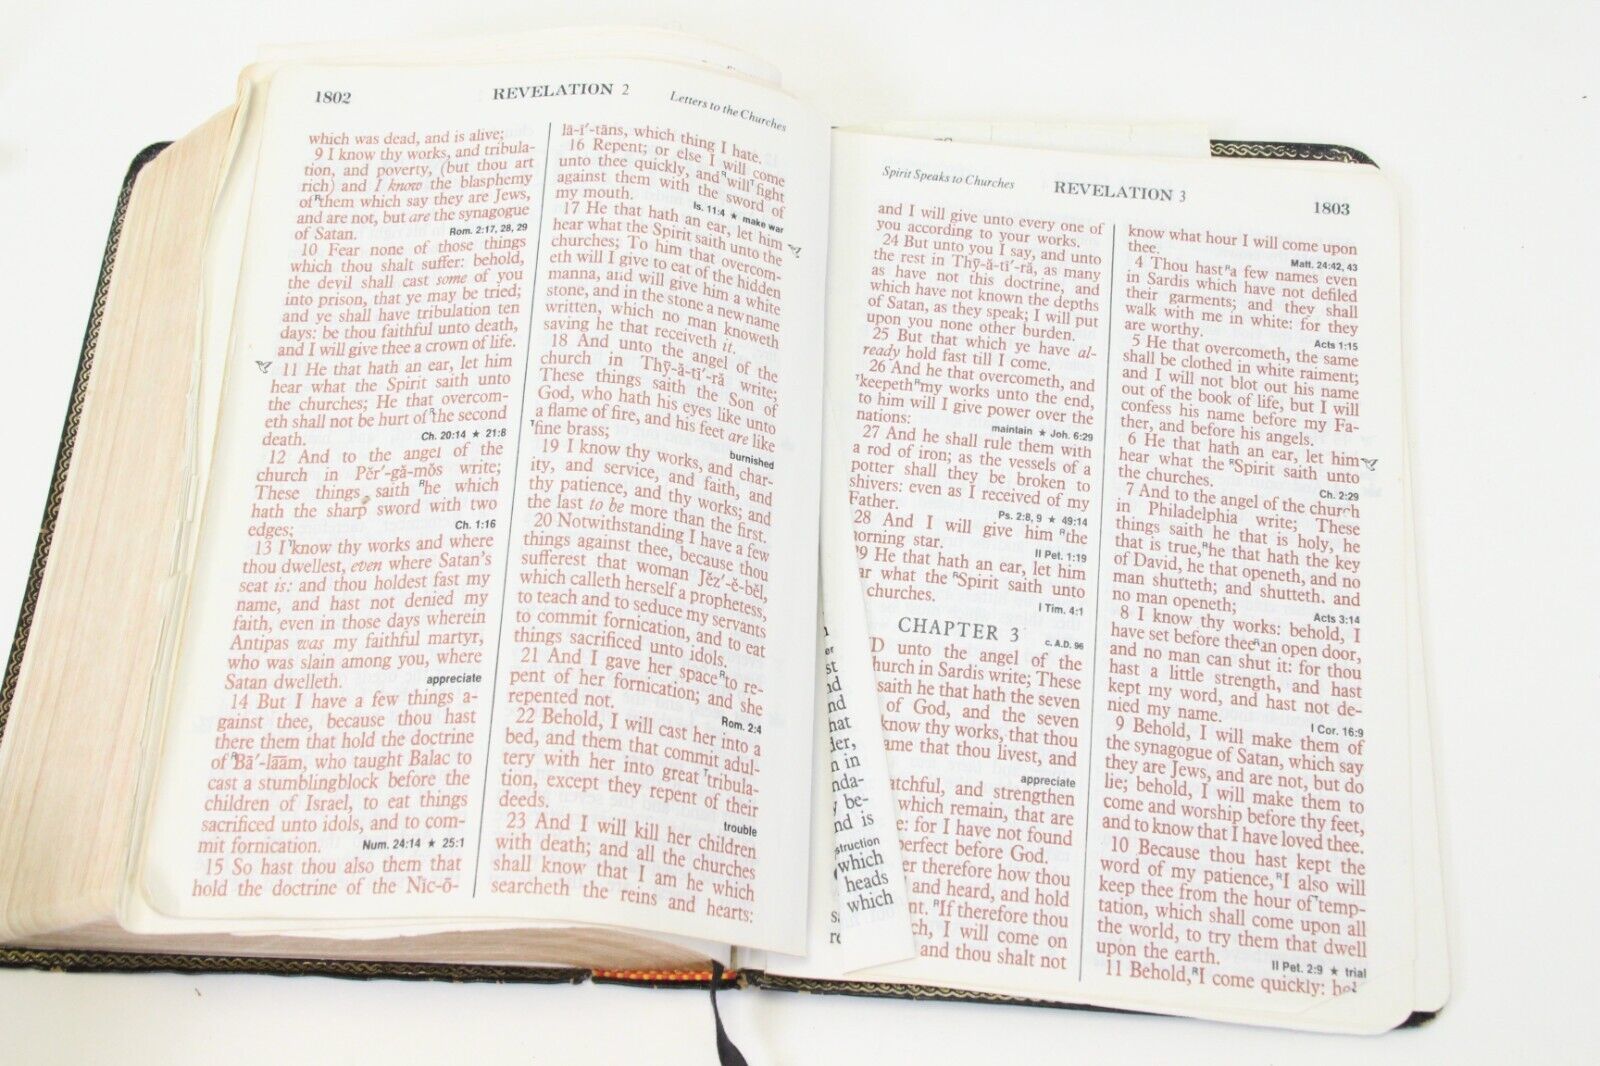 1802
REVELATION 2
Letters to the Churches
which was dead, and is alive;
9 I know thy works, and tribula-
tion, and poverty, (but thou art
rich) and I know the blasphemy
of ᴿthem which say they are Jews,
and are not, but are the synagogue
of Satan. Rom. 2:17, 28, 29
10 Fear none of those things
which thou shalt suffer: behold,
the devil shall cast some of you
into prison, that ye may be tried;
and ye shall have tribulation ten
days: be thou faithful unto death,
and I will give thee a crown of life.
11 He that hath an ear, let him
hear what the Spirit saith unto
the churches; He that overcom-
eth shall not be hurt of ᴿthe second
death. Ch. 20:14 ★ 21:8
12 And to the angel of the
church in Pĕr′-gă-mŏs write;
These things saith ᴿhe which
hath the sharp sword with two
edges; Ch. 1:16
13 I ᵀknow thy works and where
thou dwellest, even where Satan's
seat is: and thou holdest fast my
name, and hast not denied my
faith, even in those days wherein
Antipas was my faithful martyr,
who was slain among you, where
Satan dwelleth. appreciate
14 But I have a few things a-
gainst thee, because thou hast
there them that hold the doctrine
of ᴿBā′-lāăm, who taught Balac to
cast a stumblingblock before the
children of Israel, to eat things
sacrificed unto idols, and to com-
mit fornication. Num. 24:14 ★ 25:1
15 So hast thou also them that
hold the doctrine of the Nĭc-ō-
lā-ī′-tāns, which thing I hate.
16 Repent; or else I will come
unto thee quickly, and ᴿwill ᵀfight
against them with the sword of
my mouth. Is. 11:4 ★ make war
17 He that hath an ear, let him
hear what the Spirit saith unto the
churches; To him that overcom-
eth will I give to eat of the hidden
manna, and will give him a white
stone, and in the stone a new name
written, which no man knoweth
saving he that receiveth it.
18 And unto the angel of the
church in Thȳ-ă-tī′-ră write;
These things saith the Son of
God, who hath his eyes like unto
a flame of fire, and his feet are like
ᵀfine brass; burnished
19 I know thy works, and char-
ity, and service, and faith, and
thy patience, and thy works; and
the last to be more than the first.
20 Notwithstanding I have a few
things against thee, because thou
sufferest that woman Jĕz′-ĕ-bĕl,
which calleth herself a prophetess,
to teach and to seduce my servants
to commit fornication, and to eat
things sacrificed unto idols.
21 And I gave her space ᴿto re-
pent of her fornication; and she
repented not. Rom. 2:4
22 Behold, I will cast her into a
bed, and them that commit adul-
tery with her into great ᵀtribula-
tion, except they repent of their
deeds. trouble
23 And I will kill her children
with death; and all the churches
shall know that I am he which
searcheth the reins and hearts:
Spirit Speaks to Churches
REVELATION 3
1803
and I will give unto every one of
you according to your works.
24 But unto you I say, and unto
the rest in Thȳ-ă-tī′-ră, as many
as have not this doctrine, and
which have not known the depths
of Satan, as they speak; I will put
upon you none other burden.
25 But that which ye have al-
ready hold fast till I come.
26 And he that overcometh, and
ᵀkeepeth ᴿmy works unto the end,
to him will I give power over the
nations: maintain ★ Joh. 6:29
27 And he shall rule them with
a rod of iron; as the vessels of a
potter shall they be broken to
shivers: even as I received of my
Father. Ps. 2:8, 9 ★ 49:14
28 And I will give him ᴿthe
orning star. II Pet. 1:19
9 He that hath an ear, let him
ar what the ᴿSpirit saith unto
churches. I Tim. 4:1
CHAPTER 3
c. A.D. 96
D unto the angel of the
hurch in Sardis write; These
saith he that hath the seven
of God, and the seven
know thy works, that thou
ame that thou livest, and
appreciate
atchful, and strengthen
which remain, that are
e: for I have not found
perfect before God.
er therefore how thou
and heard, and hold
nt. ᴿIf therefore thou
ch, I will come on
and thou shalt not
er
st
nd
nd
hat
ler,
n in
nda-
y be-
nd is
struction
which
heads
which
know what hour I will come upon
thee. Matt. 24:42, 43
4 Thou hast ᴿa few names even
in Sardis which have not defiled
their garments; and they shall
walk with me in white: for they
are worthy. Acts 1:15
5 He that overcometh, the same
shall be clothed in white raiment;
and I will not blot out his name
out of the book of life, but I will
confess his name before my Fa-
ther, and before his angels.
6 He that hath an ear, let him
hear what the ᴿSpirit saith unto
the churches. Ch. 2:29
7 And to the angel of the church
in Philadelphia write; These
things saith he that is holy, he
that is true, ᴿhe that hath the key
of David, he that openeth, and no
man shutteth; and shutteth. and
no man openeth; Acts 3:14
8 I know thy works: behold, I
have set before thee ᴿan open door,
and no man can shut it: for thou
hast a little strength, and hast
kept my word, and hast not de-
nied my name. I Cor. 16:9
9 Behold, I will make them of
the synagogue of Satan, which say
they are Jews, and are not, but do
lie; behold, I will make them to
come and worship before thy feet,
and to know that I have loved thee.
10 Because thou hast kept the
word of my patience, ᴿI also will
keep thee from the hour of ᵀtemp-
tation, which shall come upon all
the world, to try them that dwell
upon the earth. II Pet. 2:9 ★ trial
11 Behold, ᴿI come quickly: